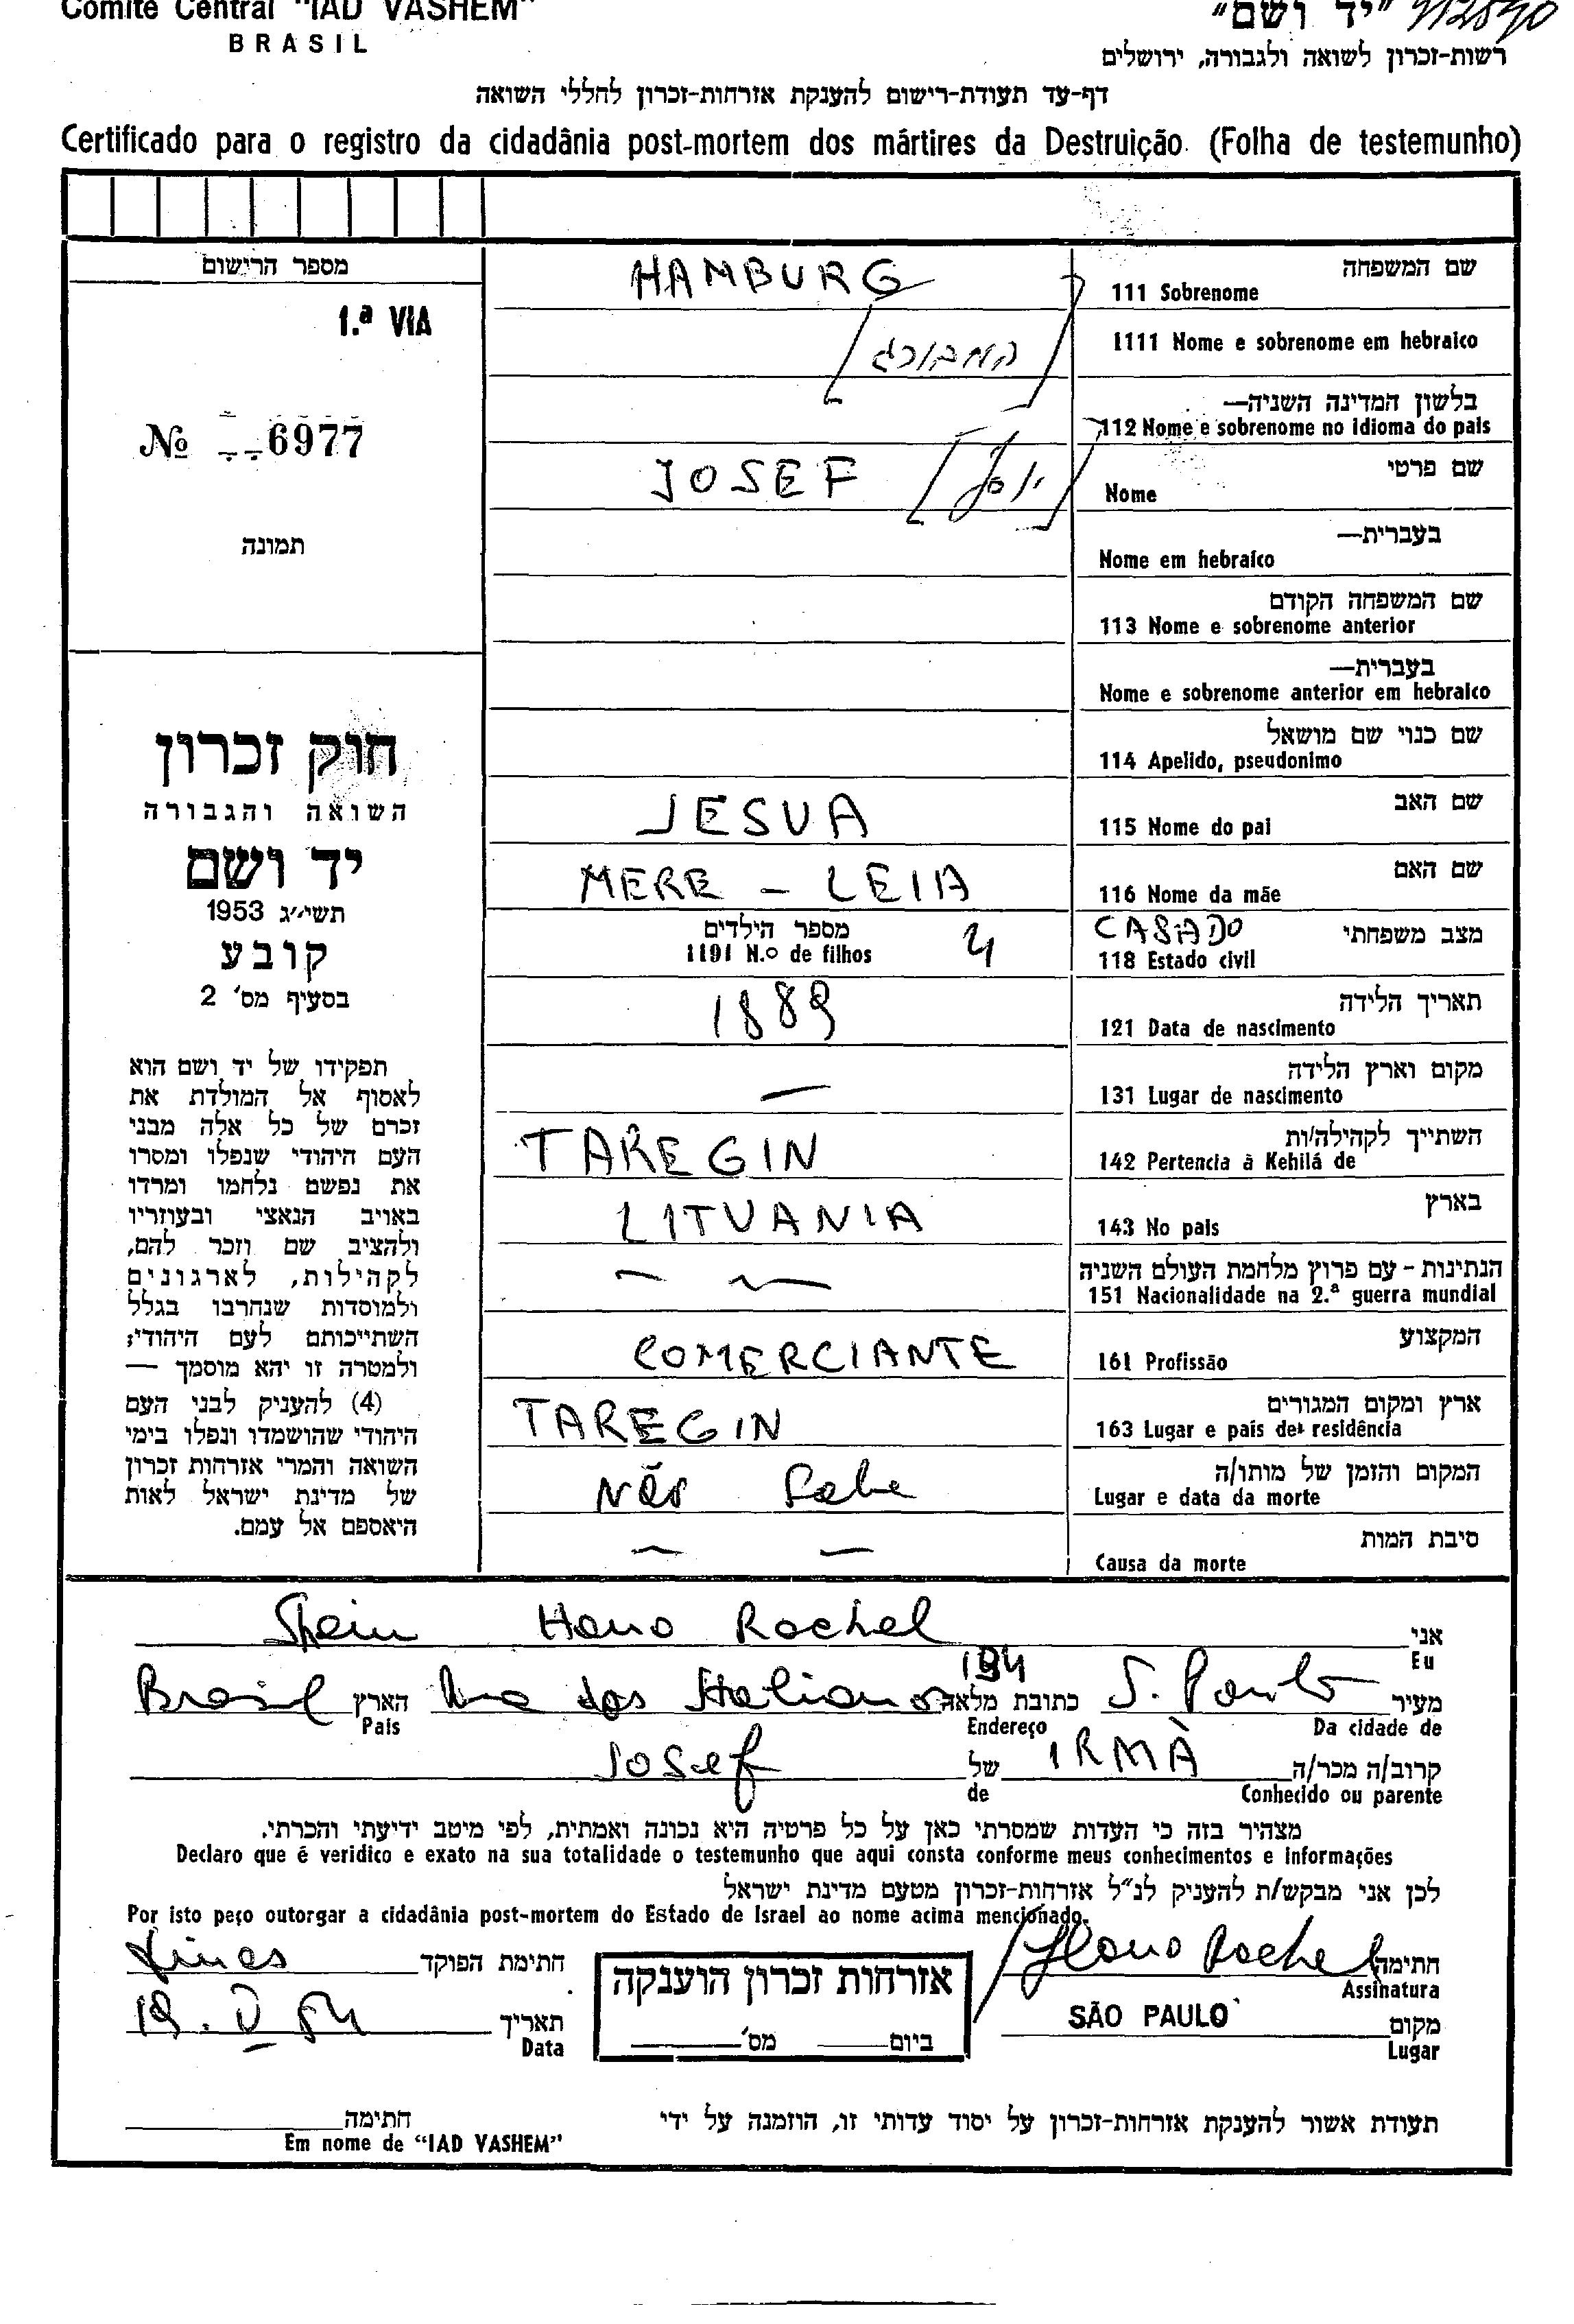 Comitê Central "IAD VASHEM"
BRASIL
"יד ושם"
רשות-זכרון לשואה ולגבורה, ירושלים
דף-עד תעודת-רישום להענקת אזרחות-זכרון לחללי השואה
Certificado para o registro da cidadânia post-mortem dos mártires da Destruição (Folha de testemunho)
מספר הרישום
1.ª VIA
№ 6977
תמונה
חוק זכרון
השואה והגבורה
יד ושם
תשי״ג 1953
קובע
בסעיף מס' 2
תפקידו של יד ושם הוא
לאסוף אל המולדת את
זכרם של כל אלה מבני
העם היהודי שנפלו ומסרו
את נפשם נלחמו ומרדו
באויב הנאצי ובעוזריו
ולהציב שם וזכר להם,
לקהילות, לארגונים
ולמוסדות שנחרבו בגלל
השתייכותם לעם היהודי;
ולמטרה זו יהא מוסמך —
(4) להעניק לבני העם
היהודי שהושמדו ונפלו בימי
השואה והמרי אזרחות זכרון
של מדינת ישראל לאות
היאספם אל עמם.
שם המשפחה
111 Sobrenome HAMBURG
1111 Nome e sobrenome em hebraico [המבורג]
בלשון המדינה השניה—
112 Nome e sobrenome no idioma do pais
שם פרטי
Nome JOSEF [יוסף]
בעברית—
Nome em hebraico
שם המשפחה הקודם
113 Nome e sobrenome anterior
בעברית—
Nome e sobrenome anterior em hebraico
שם כנוי שם מושאל
114 Apelido, pseudonimo
שם האב
115 Nome do pai JESUA
שם האם
116 Nome da mãe MERE - LEIA
מצב משפחתי
118 Estado civil CASADO
מספר הילדים
1191 N.º de filhos 4
תאריך הלידה
121 Data de nascimento 1889
מקום וארץ הלידה
131 Lugar de nascimento —
השתייך לקהילה/ות
142 Pertencia à Kehilá de TAREGIN
בארץ
143 No pais LITUANIA
הנתינות - עם פרוץ מלחמת העולם השניה
151 Nacionalidade na 2.ª guerra mundial — —
המקצוע
161 Profissão COMERCIANTE
ארץ ומקום המגורים
163 Lugar e pais de residência TAREGIN
המקום והזמן של מותו/ה
Lugar e data da morte Não Sabe
סיבת המות
Causa da morte — —
אני
Eu Shein Hano Rachel
מעיר
Da cidade de S. Paulo
כתובת מלאה
Endereço Rua dos Italianos 194
הארץ
Pais Brasil
קרוב/ה מכר/ה
Conhecido ou parente IRMÀ
של
de Josef
מצהיר בזה כי העדות שמסרתי כאן על כל פרטיה היא נכונה ואמתית, לפי מיטב ידיעתי והכרתי.
Declaro que é veridico e exato na sua totalidade o testemunho que aqui consta conforme meus conhecimentos e informações
לכן אני מבקש/ת להעניק לנ"ל אזרחות-זכרון מטעם מדינת ישראל
Por isto peço outorgar a cidadânia post-mortem do Estado de Israel ao nome acima mencionado.
חתימה
Assinatura Hano Rachel
חתימת הפוקד
מקום
Lugar SÃO PAULO
אזרחות זכרון הוענקה
ביום מס'
תאריך
Data 19. V 54
תעודת אשור להענקת אזרחות-זכרון על יסוד עדותי זו, הוזמנה על ידי
חתימה
Em nome de "IAD VASHEM"